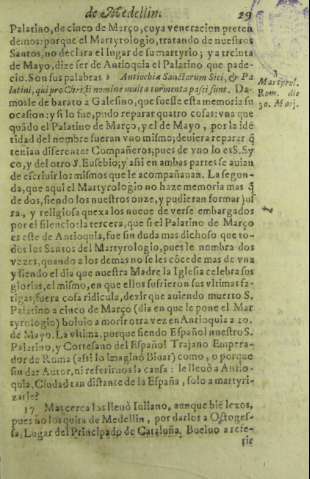 de Medellin. 29
Palatino, de cinco de Março, cuya veneracion preten
demos: porque el Martyrologio, tratando de nuestros
Santos, no declara el lugar de su martyrio; y a treinta
de Mayo, dize ser de Antioquia el Palatino que pade-
cio. Son sus palabras Antiochiæ Sanctorum Sici, & Pa
latini, qui pro Christi nomine multa tormenta passi sunt. Da-
mosle de barato a Galesino, que fuesse esta memoria su
ocasion: y si lo fue, pudo reparar quatro cosas: vna que
quãdo el Palatino de Março, y el de Mayo, por la idẽ
tidad del nombre fueran vno mismo; deviera reparar q̃
tenian diferente Compañeros, pues de vno lo es S. Sy
co, y del otro S. Eusebio; y assi en ambas partes se auian
de escriuir los mismos que le acompañauan. La segun-
da, que aqui el Martyrologio no haze memoria mas q̃
de dos, siendo los nuestros onze, y pudieran formar jus
ta, y religiosa quexa los nueue de verse embargados
por el silencio: la tercera, que si el Palatino de Março
es este de Antioquia, fue sin duda mas dichoso que to-
dos los Santos del Martyrologio, pues le nombra dos
vezes, quando a los demas no se les cõcede mas de vna
y siendo el dia que nuestra Madre la Iglesia celebra sus
glorias, el mismo, en que ellos sufrieron sus vltimas fa-
tigas, fuera cosa ridicula, dezir que auiendo muerto S.
Palatino a cinco de Março (dia en que le pone el Mar
tyrologio) boluio a morir otra vez en Antioquia a 30.
de Mayo. La vltima, porque siendo Español nuestro S.
Palatino, y Cortesano del Español Trajano Empera-
dor de Roma (assi lo imaginò Biuar) como, o porque
sin dar Autor, ni referirnos la causa: le lleuò a Antio-
quia, Ciudad tan distante de la España, solo a martyri-
zarle?
17 Mas cerca las lleuò Iuliano, aunque biẽ lexos,
pues no los quita de Medellin, por darlos a Octoges-
sa, Lugar del Principado de Cataluña. Bueluo a refe-
rir
3.
Martyrol.
Rom. die
30. Maij.